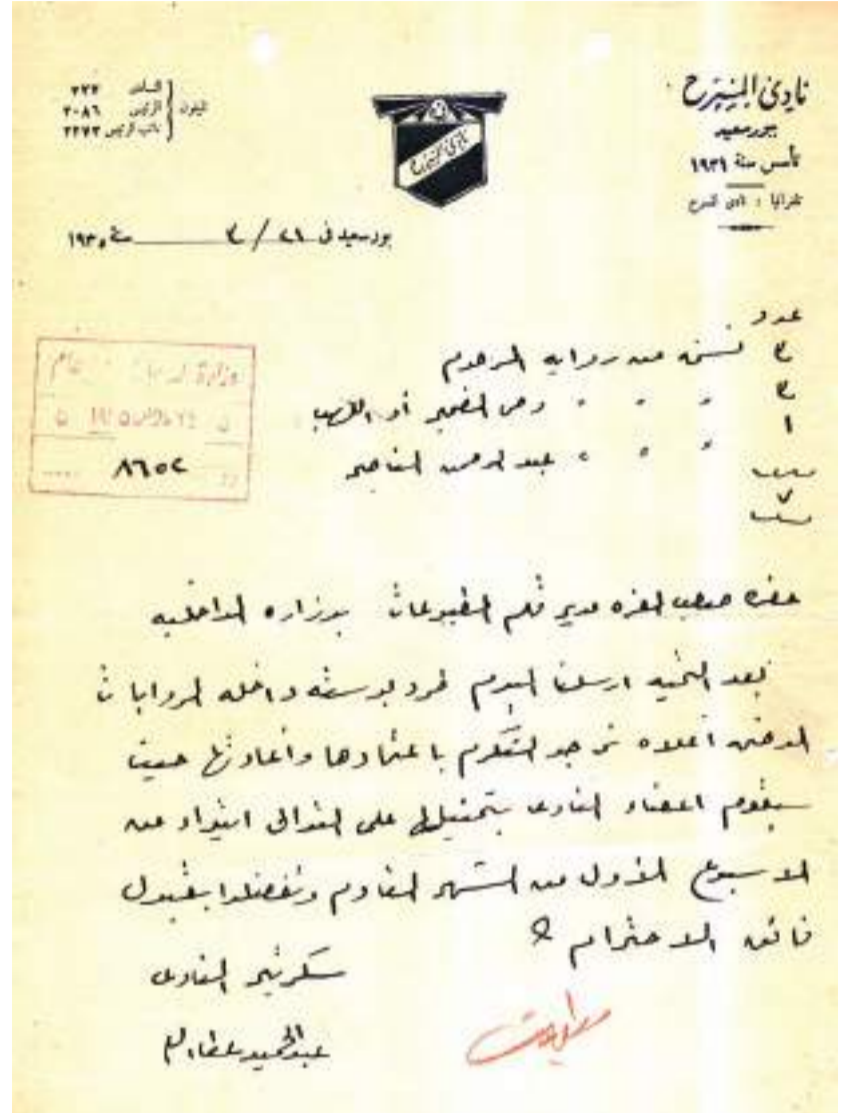 نادي المسرح
بورسعيد
تأسس سنة ١٩٣١
تلغرافيا : نادي المسرح
تليفون
السكرتير ٢٢٢
الرئيس ٢٠٨٦
نائب الرئيس ٢٢٧٢
نادي المسرح
بورسعيد في ٢١ / ٣ سنة ١٩٣٥
عدد
٣ نسخ من رواية المرحوم
٣ " " " وخز الضمير أو اللهب
١ " " " عبد الرحمن الناصر
٧
وزارة الداخلية عام
٨٦٥٢
حضرة صاحب العزه مدير قلم المطبوعات بوزاره الداخليه
بعد التحيه ارسلنا اليوم طرد بوسته داخله الروايات
الموضحه أعلاه نرجو التكرم باعتمادها وأعادتها حيث
سيقوم اعضاء النادى بتمثيلها على التوالى ابتداء من
الاسبوع الأول من الشهر القادم وتفضلوا بقبول
فائق الاحترام
سكرتير النادى
عبدالحميد عطا الله